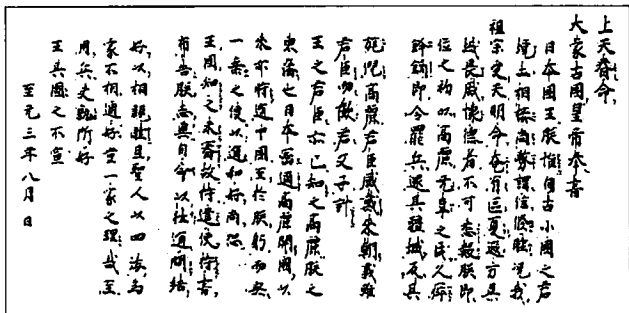 上天眷命
大蒙古國皇帝奉書
日本國王朕惟自古小國之君
境土相接尚務講信修睦況我
祖宗受天明命奄有區夏遐方異
域畏威懷德者不可悉數朕即
位之初以高麗无辜之民久瘁
鋒鏑即令罷兵還其疆域反其
旄倪高麗君臣感戴來朝義雖
君臣而歡若父子計
王之君臣亦已知之高麗朕之
東藩也日本密邇高麗開國以
來亦時通中國至於朕躬而無
一乘之使以通和好尚恐
王國知之未審故特遣使持書
布告朕志冀自今以往通問結
好以相親睦且聖人以四海為
家不相通好豈一家之理哉至
用兵夫孰所好
王其圖之不宣
至元三年八月 日